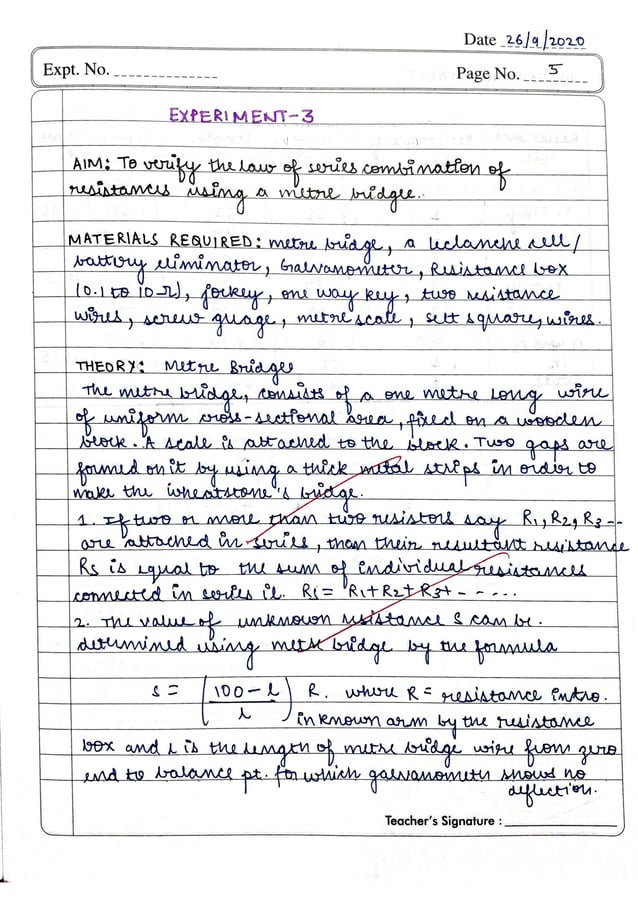 Date 26/9/2020
Expt. No.
Page No. 5
EXPERIMENT-3
AIM: To verify the law of series combination of
resistances using a metre bridgee.
MATERIALS REQUIRED: metre bridge, a leclanche cell/
battery eliminator, Galvanometer, Resistance box
(0.1 to 10 Ω), jockey, one way key, two resistance
wires, screw guage, metre scale, sett square, wires.
THEORY: Metre Bridgee
The metre bridge, consists of a one metre long wire
of uniform cross-sectional area, fixed on a wooden
block. A scale is attached to the block. Two gaps are
formed on it by using a thick metal strips in order to
make the wheatstone's bridge.
1. If two or more than two resistors say R1, R2, R3 --
are attached in series, than their resultant resistance
Rs is equal to the sum of individual resistances
connected in series ie. Rs = R1+R2+R3+ - - - ...
2. The value of unknown resistance S can be.
determined using metre bridge by the formula
S = (100-l / l) R. where R = resistance intro.
in known arm by the resistance
box and l is the length of metre bridge wire from zero
end to balance pt. for which galvanometer shows no
deflection.
Teacher's Signature :